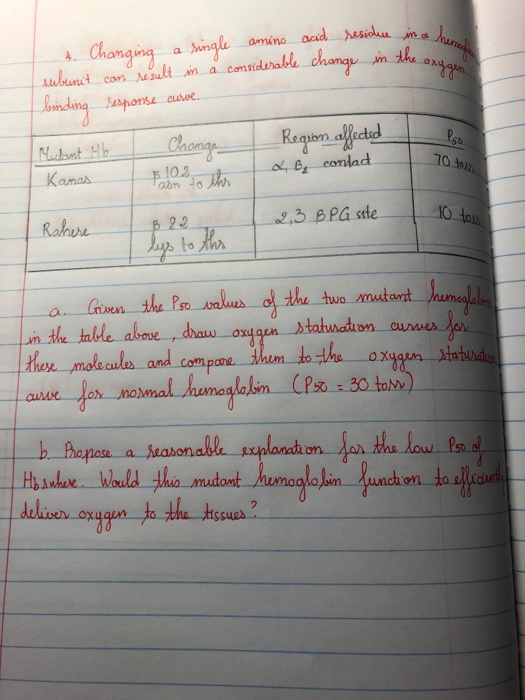 4. Changing a single amino acid residue in a
subunit can result in a considerable change in the oxygen
binding response curve.
Mutant Hb Change Region affected P50
Kansas β 102 asn to thr α, β2 contact 70 torr
Rahere β 82 lys to thr 2,3 BPG site 10 torr
a. Given the P50 values of the two mutant
in the table above, draw oxygen staturation curves for
these molecules and compare them to the oxygen
curve for normal hemoglobin (P50 = 30 torr)
b. Propose a reasonable explanation for the low P50 of
Would this mutant hemoglobin function to
deliver oxygen to the tissues?